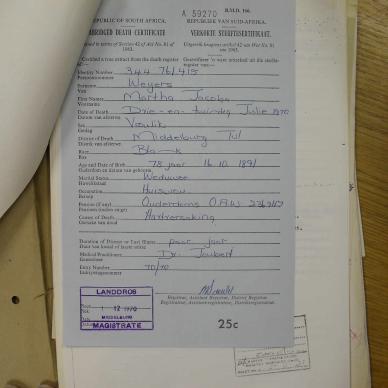 A 59270 B.M.D. 166.
REPUBLIC OF SOUTH AFRICA. REPUBLIEK VAN SUID-AFRIKA.
ABRIDGED DEATH CERTIFICATE VERKORTE STERFTESERTIFIKAAT.
Issued in terms of Section 42 of Act No. 81 of 1963. Uitgereik kragtens artikel 42 van Wet No. 81 van 1963.
Certified a true extract from the death register Gesertifiseer 'n ware uittreksel uit die sterfteregister van:—
Identity Number 344 761415
Persoonsnommer
Surname Weyers
First Names Martha Jacoba
Voorname
Date of Death Drie-en-twintig Julie 1970
Datum van afsterwe
Sex Vroulik
Geslag
District of Death Middelburg Tvl
Race Blank
Ras
Age and Date of Birth 78 jaar 16.10.1891
Ouderdom en datum van geboorte
Marital Status Weduwee
Huwelikstaat
Occupation Huisvrou
Beroep
Pension (if any) Ouderdoms O.A.W.
Pensioen (indien enige)
Causes of Death Hartversaking
Oorsake van dood
Duration of Disease or Last Illness paar jaar
Duur van kwaal of laaste siekte
Medical Practitioner Dr. Joubert
Geneesheer
Entry Number 70/70
Inskrywingsnommer
Registrar, Assistant Registrar, District Registrar
Registrateur, Assistent-registrateur, Distriksregistrateur
LANDDROS
12 1970
MIDDELBURG
MAGISTRATE
25c